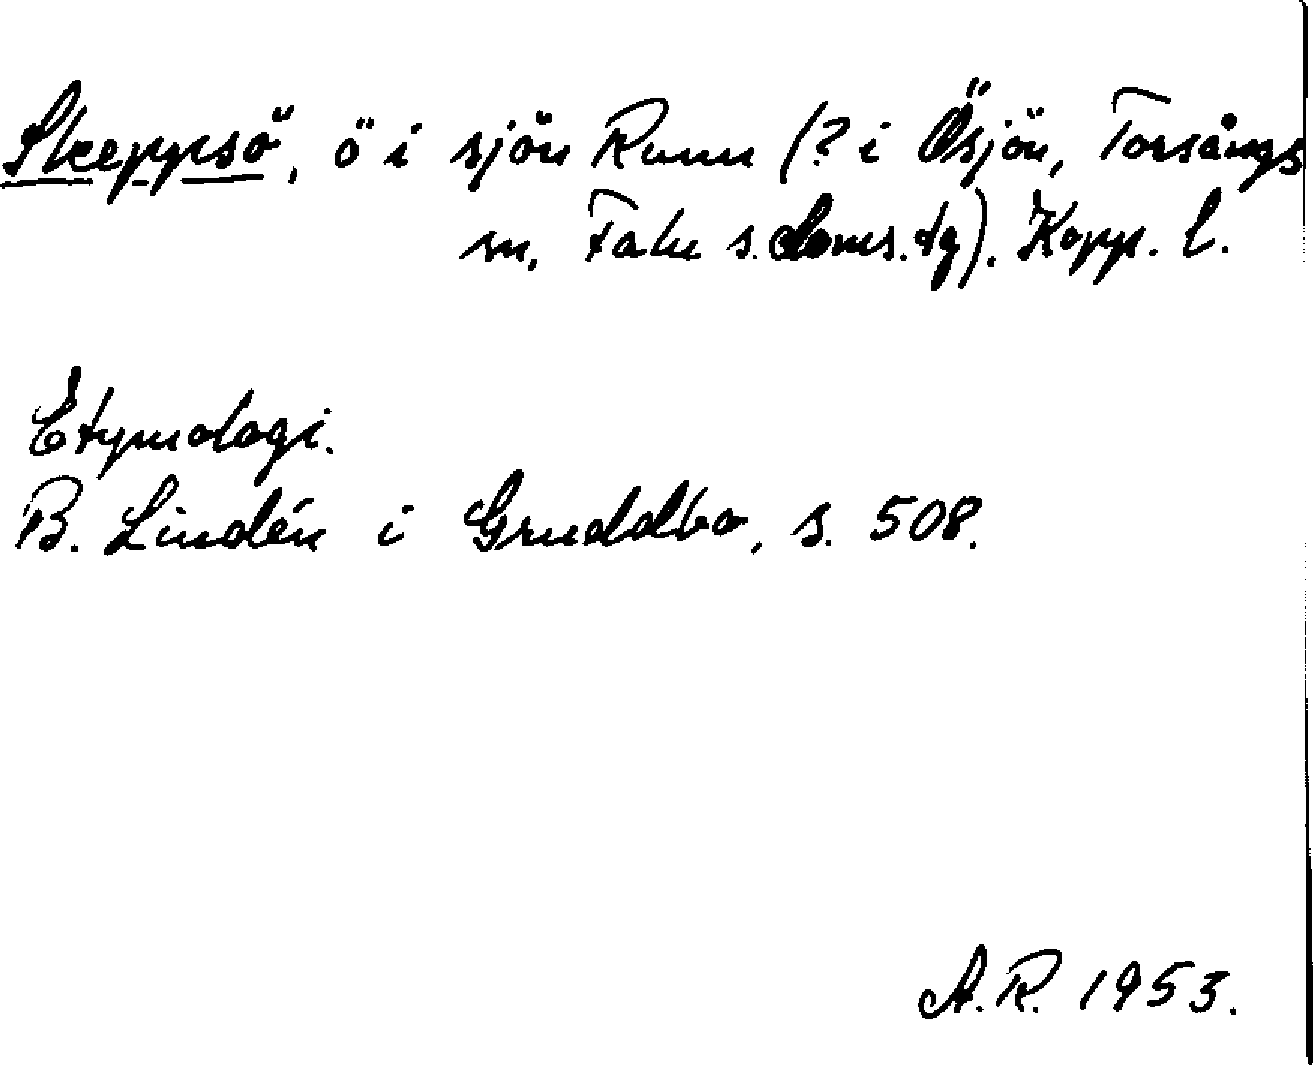 Skeppsö, ö i sjön Runn (? i Ösjön, Torsångs
sn, Falu s. doms.tg). Kopp. l.
Etymologi.
B. Lindén i Gruddbo, s. 508.
A.R. 1953.